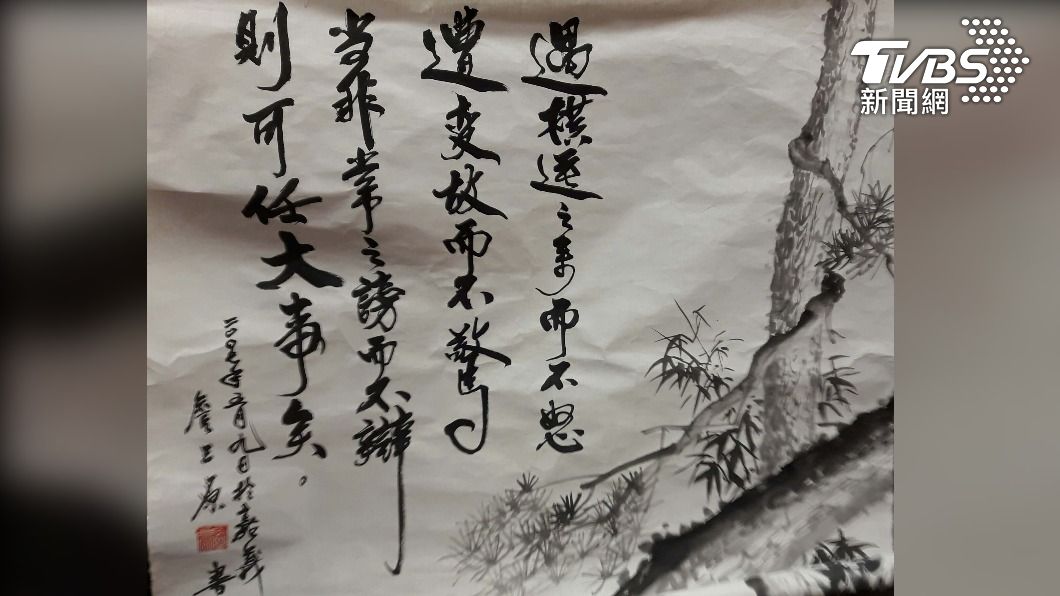 TVBS
新聞網
遇橫逆之来而不怒
遭变故而不驚
当非常之謗而不辯
則可任大事矣。
二〇〇七年五月九日於嘉義
詹三 書